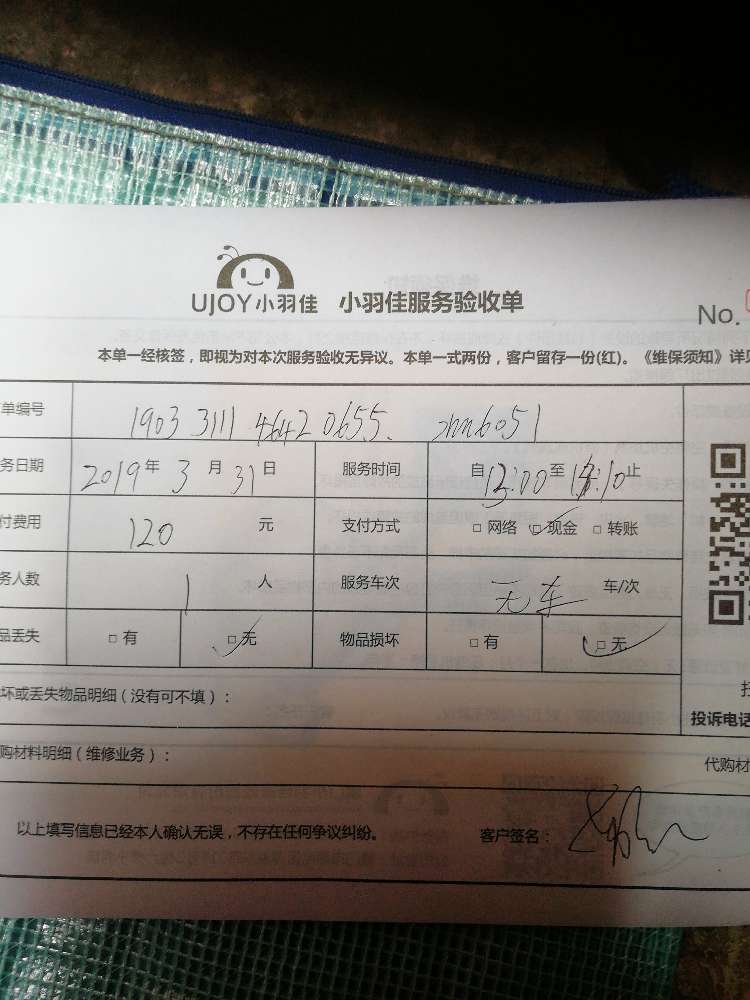 UJOY小羽佳 小羽佳服务验收单
No.
本单一经核签，即视为对本次服务验收无异议。本单一式两份，客户留存一份(红)。《维保须知》详见
单编号 1903 3111 4642 0655.
务日期 2019年 3月 31日 服务时间 自13:00至 :10止
付费用 120 元 支付方式 □ 网络 □ 现金 □ 转账
务人数 1 人 服务车次 无车 车/次
品丢失 □ 有 □ 无 物品损坏 □ 有 □ 无
坏或丢失物品明细（没有可不填）：
投诉电话
购材料明细（维修业务）：
代购材
以上填写信息已经本人确认无误，不存在任何争议纠纷。 客户签名：